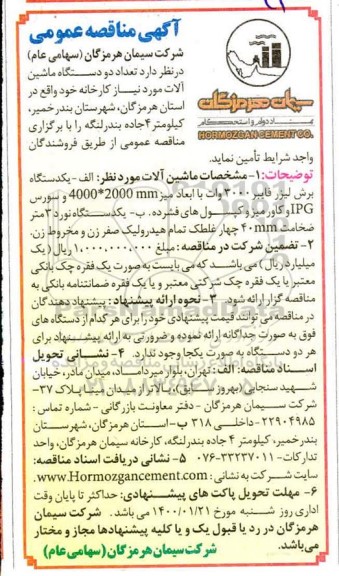 آگهی مناقصه عمومی
شرکت سیمان هرمزگان (سهامی عام)
در نظر دارد تعداد دو دستگاه ماشین
آلات مورد نیاز کارخانه خود واقع در
استان هرمزگان، شهرستان بندرخمیر،
کیلومتر ۴ جاده بندرلنگه را با برگزاری
مناقصه عمومی از طریق فروشندگان
سیمان هرمزگان
نماد دوام و استحکام
HORMOZGAN CEMENT CO.
واجد شرایط تأمین نماید.
توضیحات: ۱- مشخصات ماشین آلات مورد نظر: الف - یکدستگاه
برش لیزر فایبر ۳۰۱۰ وات با ابعاد میز 4000*2000 mm و سورس
IPG و کاور میز و کپسول های فشرده. ب- یکدستگاه نورد ۳ متر
ضخامت ۴۰mm چهار غلطک تمام هیدرولیک صفر زن و مخروط زن.
۲- تضمین شرکت در مناقصه: مبلغ ۱،۰۰۰،۰۰۰،۰۰۰ ریال (یک
میلیارد ریال) می باشد که می بایست به صورت یک فقره چک بانکی
معتبر یا یک فقره چک شرکتی معتبر و یا یک فقره ضمانتنامه بانکی به
مناقصه گزار ارائه شود. ۳- نحوه ارائه پیشنهاد: پیشنهاد دهندگان
در مناقصه می توانند قیمت پیشنهادی خود را برای هر کدام از دستگاه های
فوق به صورت جداگانه ارائه نموده و ضرورتی به ارائه پیشنهاد برای
هر دو دستگاه به صورت یکجا وجود ندارد. ۴- نشانی تحویل
اسناد مناقصه: الف: تهران، بلوار میرداماد، میدان مادر، خیابان
شهید سنجابی (بهروز سابق)، بالاتر از میدان مینا پلاک ۳۷-
شرکت سیمان هرمزگان - دفتر معاونت بازرگانی - شماره تماس:
۲۲۹۰۴۹۸۵-داخلی ۳۱۸ ب- استان هرمزگان، شهرستان
بندرخمیر، کیلومتر ۴ جاده بندرلنگه، کارخانه سیمان هرمزگان، واحد
تدارکات- ۳۳۲۳۷۰۱۱-۰۷۶ ۵- نشانی دریافت اسناد مناقصه:
سایت شرکت به نشانی: www.Hormozgancement.com
۶- مهلت تحویل پاکت های پیشنهادی: حداکثر تا پایان وقت
اداری روز شنبه مورخ ۱۴۰۰/۰۱/۲۱ می باشد. شرکت سیمان
هرمزگان در رد یا قبول یک و یا کلیه پیشنهادها مجاز و مختار
می باشد.
شرکت سیمان هرمزگان (سهامی عام)